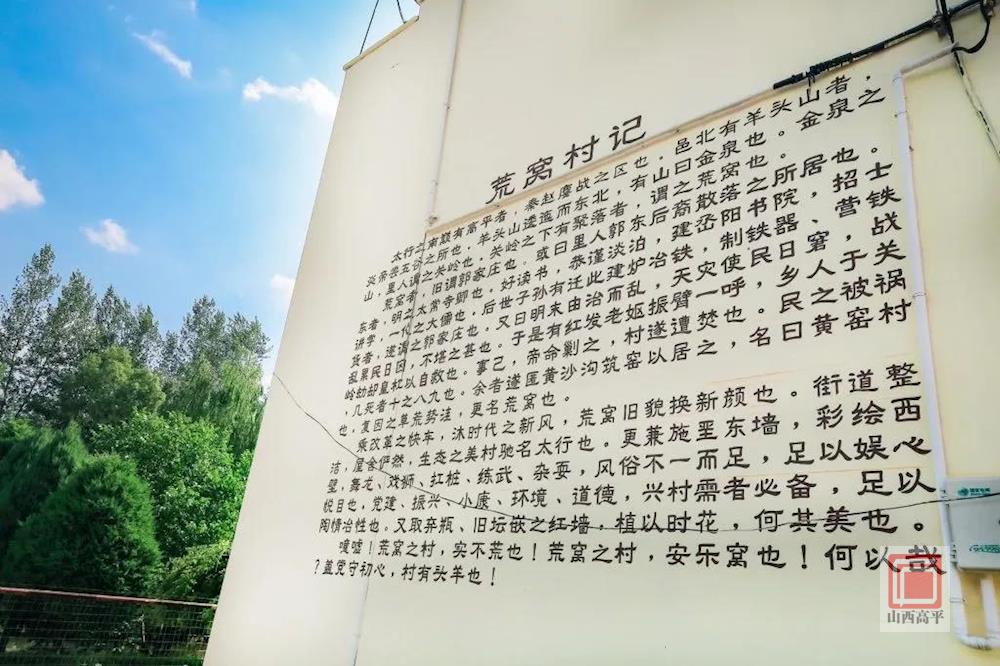 荒窝村记
太行之南巅有高平者，秦赵鏖战之区也，邑北有羊头山者，
炎帝尝五谷之所也，羊头山逶迤而东北，有山曰金泉也。金泉之
山，里人谓之关岭也，关岭之下有聚落者，谓之荒窝也。
荒窝者，旧谓郭家庄也。或曰里人郭东后裔散落之所居也。
东者，明之太常寺卿也，好读书，恭谨淡泊，建岙阳书院，招士
讲学，一代之大儒也。后世子孙有迁此建炉冶铁，制铁器、营铁
货者，遂谓之郭家庄也。又曰明末由治而乱，天灾使民日窘，战
乱累民日困，不堪之甚也。于是有红发老妪振臂一呼，乡人于关
岭劫却皇杠以自救也。事己，帝命剿之，村遂遭焚也。民之被祸
，几死者十之八九也。余者遂匿黄沙沟筑窑以居之，名曰黄窑村
也，复因之草荒势洼，更名荒窝也。
乘改革之快车，沐时代之新风，荒窝旧貌换新颜也。街道整
洁，屋舍俨然，生态之美村驰名太行也。更兼施垩东墙，彩绘西
壁，舞龙、戏狮、扛桩、练武、杂耍，风俗不一而足，足以娱心
悦目也，党建、振兴、小康、环境、道德，兴村需者必备，足以
陶情冶性也。又取弃瓶、旧坛嵌之红墙，植以时花，何其美也。
噫嘘！荒窝之村，实不荒也！荒窝之村，安乐窝也！何以哉
？盖党守初心，村有头羊也！
山西高平